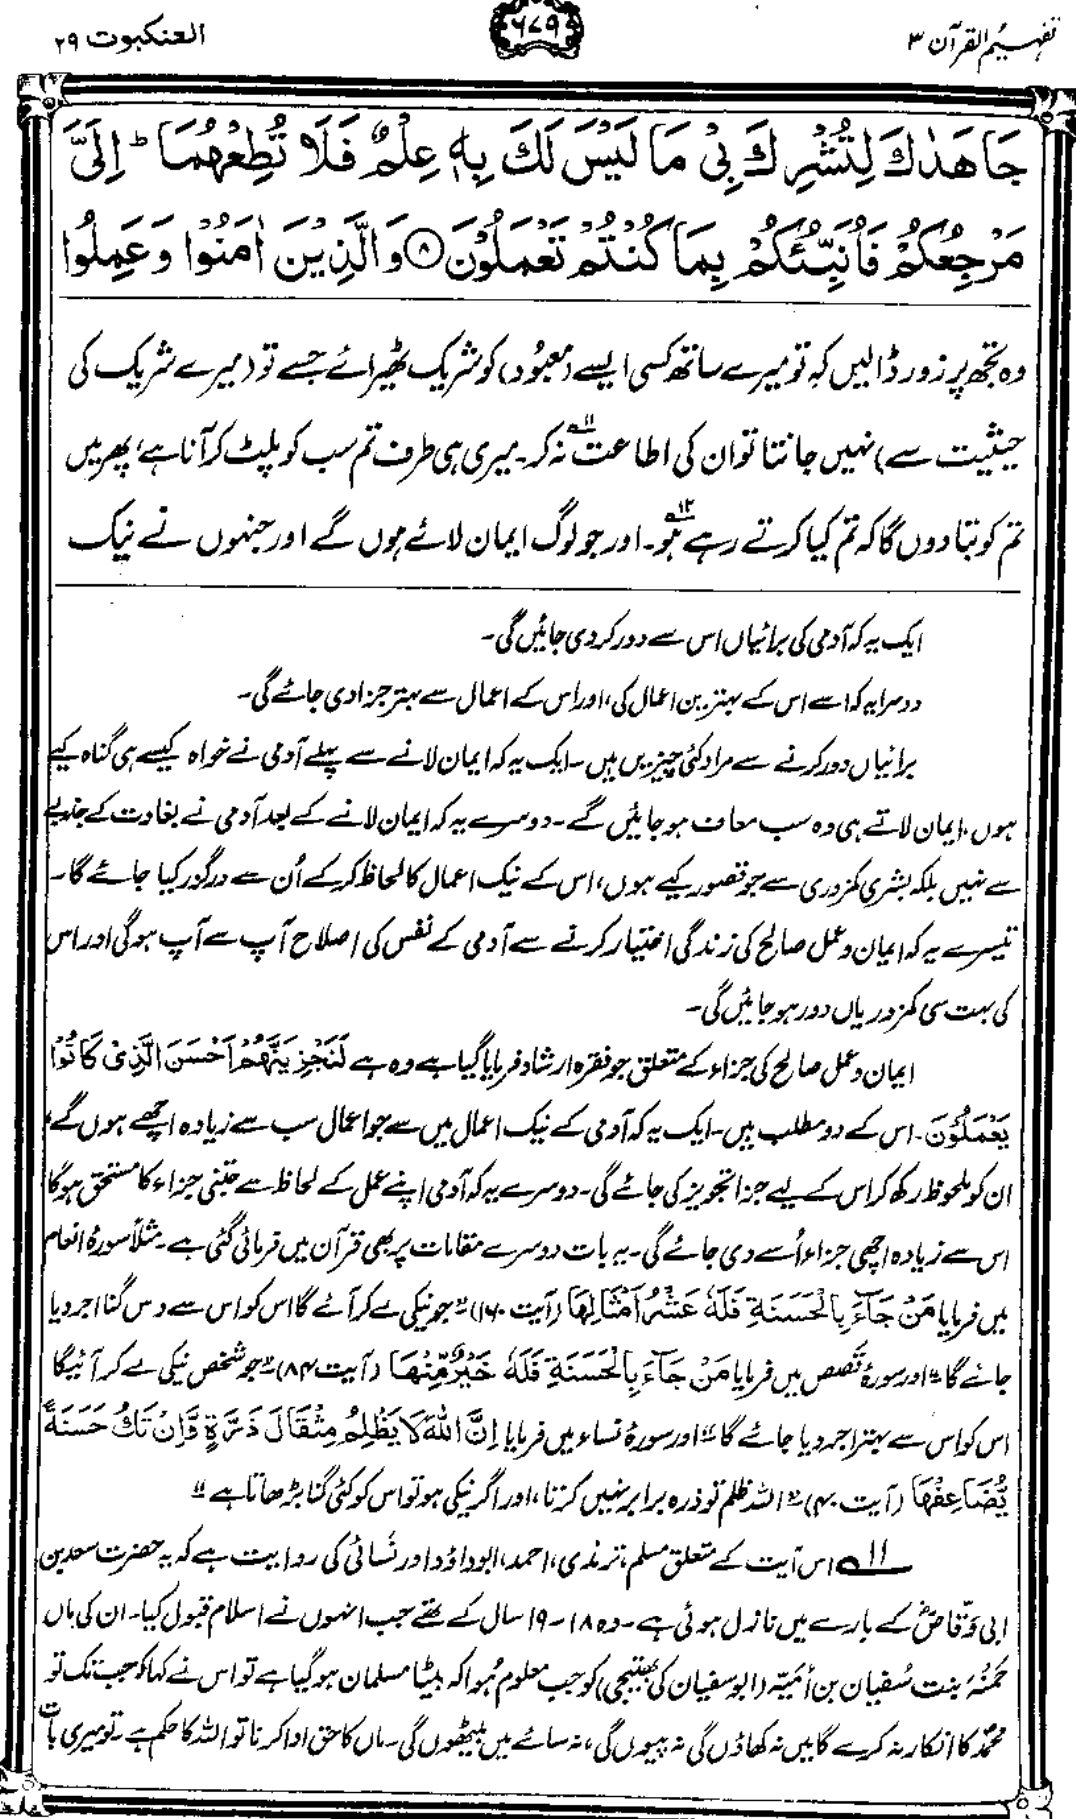 تفہیم القرآن ۳
۶۷۹
العنکبوت ۲۹
جَاهَدٰكَ لِتُشْرِكَ بِيْ مَا لَيْسَ لَكَ بِهٖ عِلْمٌ فَلَا تُطِعْهُمَا ؕ اِلَيَّ
مَرْجِعُكُمْ فَاُنَبِّئُكُمْ بِمَا كُنْتُمْ تَعْمَلُوْنَ ﴿۸﴾ وَالَّذِيْنَ اٰمَنُوْا وَعَمِلُوا
وہ تجھ پر زور ڈالیں کہ تو میرے ساتھ کسی ایسے (معبُود) کو شریک ٹھیرائے جسے تو (میرے شریک کی
حیثیت سے) نہیں جانتا تو ان کی اطاعت نہ کر۔۱۱؎ میری ہی طرف تم سب کو پلٹ کر آنا ہے، پھر میں
تم کو بتا دوں گا کہ تم کیا کرتے رہے ہو۔۱۲؎ اور جو لوگ ایمان لائے ہوں گے اور جنہوں نے نیک
ایک یہ کہ آدمی کی برائیاں اس سے دور کر دی جائیں گی۔
دوسرا یہ کہ اسے اس کے بہترین اعمال کی، اور اس کے اعمال سے بہتر جزا دی جائے گی۔
برائیاں دور کرنے سے مراد کئی چیزیں ہیں۔ ایک یہ کہ ایمان لانے سے پہلے آدمی نے خواہ کیسے ہی گناہ کیے
ہوں، ایمان لاتے ہی وہ سب معاف ہو جائیں گے۔ دوسرے یہ کہ ایمان لانے کے بعد آدمی نے بغاوت کے جذبے
سے نہیں بلکہ بشری کمزوری سے جو قصور کیے ہوں، اس کے نیک اعمال کا لحاظ کر کے اُن سے درگزر کیا جائے گا۔
تیسرے یہ کہ ایمان و عمل صالح کی زندگی اختیار کرنے سے آدمی کے نفس کی اصلاح آپ سے آپ ہو گی اور اس
کی بہت سی کمزوریاں دور ہو جائیں گی۔
ایمان و عمل صالح کی جزاء کے متعلق جو فقرہ ارشاد فرمایا گیا ہے وہ ہے لَنَجْزِيَنَّهُمْ اَحْسَنَ الَّذِيْ كَانُوْا
يَعْمَلُوْنَ۔ اس کے دو مطلب ہیں۔ ایک یہ کہ آدمی کے نیک اعمال میں سے جو اعمال سب سے زیادہ اچھے ہوں گے،
ان کو ملحوظ رکھ کر اس کے لیے جزا تجویز کی جائے گی۔ دوسرے یہ کہ آدمی اپنے عمل کے لحاظ سے جتنی جزاء کا مستحق ہو گا
اس سے زیادہ اچھی جزاء اُسے دی جائے گی۔ یہ بات دوسرے مقامات پر بھی قرآن میں فرمائی گئی ہے۔ مثلاً سورۂ انعام
میں فرمایا مَنْ جَآءَ بِالْحَسَنَةِ فَلَهٗ عَشْرُ اَمْثَالِهَا (آیت ۱۶۰) "جو نیکی لے کر آئے گا اس کو اس سے دس گنا اجر دیا
جائے گا" اور سورۂ قصص میں فرمایا مَنْ جَآءَ بِالْحَسَنَةِ فَلَهٗ خَيْرٌ مِّنْهَا (آیت ۸۴) "جو شخص نیکی لے کر آئیگا
اس کو اس سے بہتر اجر دیا جائے گا" اور سورۂ نساء میں فرمایا اِنَّ اللهَ لَا يَظْلِمُ مِثْقَالَ ذَرَّةٍ وَّاِنْ تَكُ حَسَنَةً
يُّضَاعِفْهَا (آیت ۴۰) "اللہ ظلم تو ذرہ برابر نہیں کرتا، اور اگر نیکی ہو تو اس کو کئی گنا بڑھاتا ہے"
۱۱؎ اس آیت کے متعلق مسلم، ترمذی، احمد، ابوداؤد اور نسائی کی روایت ہے کہ یہ حضرت سعد بن
ابی وقاصؓ کے بارے میں نازل ہوئی ہے۔ وہ ۱۸-۱۹ سال کے تھے جب انہوں نے اسلام قبول کیا۔ ان کی ماں
حَمنہ بنت سُفیان بن اُمَیّہ (ابو سفیان کی بھتیجی) کو جب معلوم ہُوا کہ بیٹا مسلمان ہو گیا ہے تو اس نے کہا کہ جب تک تو
محمدؐ کا انکار نہ کرے گا میں نہ کھاؤں گی نہ پیوں گی، نہ سائے میں بیٹھوں گی۔ ماں کا حق ادا کرنا تو اللہ کا حکم ہے۔ تو میری بات